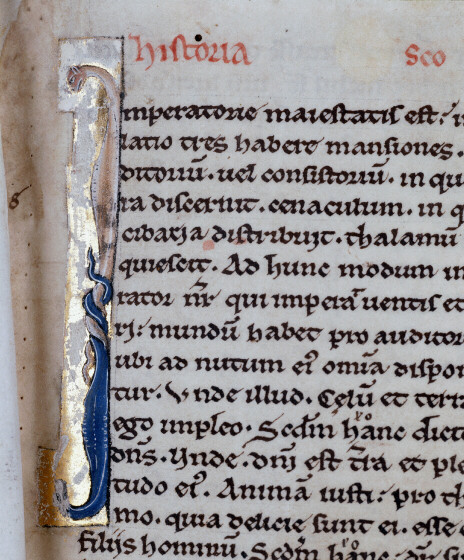 historia Sco
mperatorie maiestatis est. i
latio tres habere mansiones.
ditoriū. uel consistoriū. in qu
ra discernit. cenaculum. in q
cibaria distribuit. thalamū
quiescit. Ad hunc modum in
rator nr̄ qui imperat uentis et
ri: mundū habet pro auditor
ubi ad nutum ei᾽ omīa dispon
tur. Vnde illud. Celū et terra
ego impleo. Scdm hanc dict
dns̄. Unde. dn̄i est t̄ra et ple
tudo ei᾽. Animā iusti. pro th
mo. quia delicie sunt ei. esse
filijs hominū. Scdm hanc